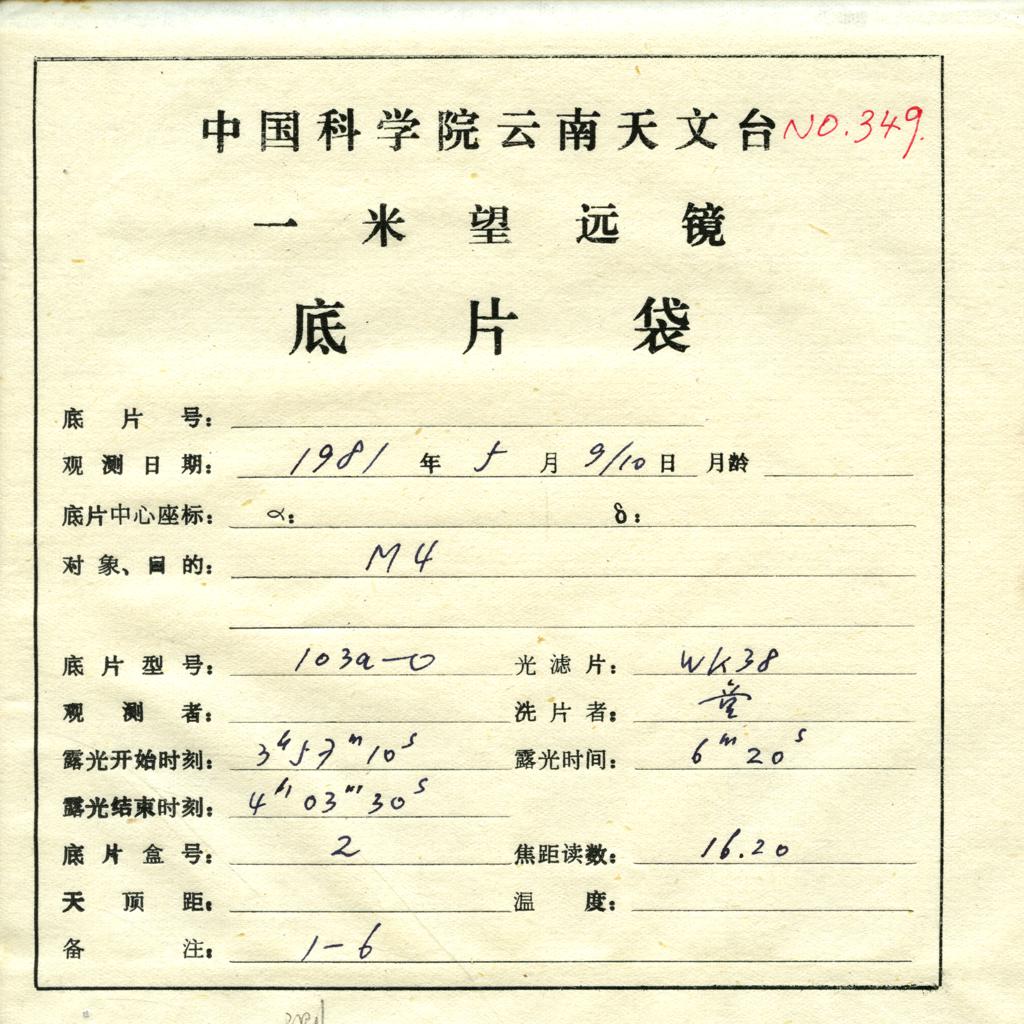 中国科学院云南天文台 NO.349.
一米望远镜
底片袋
底片号：
观测日期： 1981 年 5 月 9/10 日 月龄
底片中心座标： α： δ：
对象、目的： M4
底片型号： 103a-O 光滤片： WK38
观测者： 洗片者：
露光开始时刻： 3h57m10s 露光时间： 6m20s
露光结束时刻： 4h03m30s
底片盒号： 2 焦距读数： 16.20
天顶距： 温度：
备注： 1-6